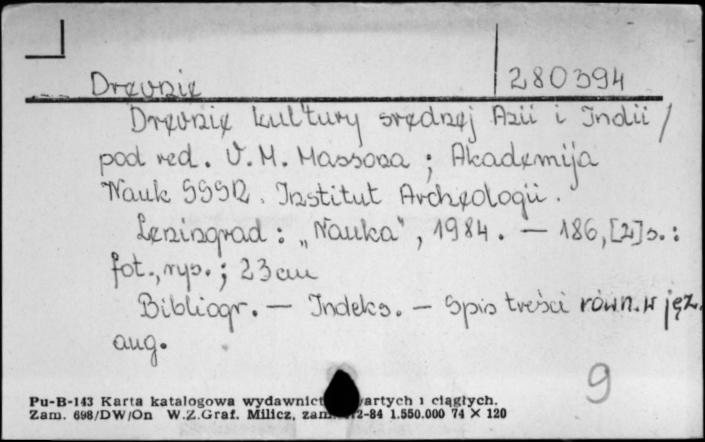 Drevnie
280394
Drevnie kultury srednej Azii i Indii /
pod red. V. M. Massona ; Akademija
Nauk SSSR. Institut Archeologii.
Leningrad : „Nauka", 1984. — 186, [2] s. :
fot., rys. ; 23 cm
Bibliogr. — Indeks. — Spis treści równ. w jęz.
ang.
9
Pu-B-143 Karta katalogowa wydawnict artych i ciągłych.
Zam. 698/DW/On W.Z.Graf. Milicz, zam. 2-84 1.550.000 74 × 120